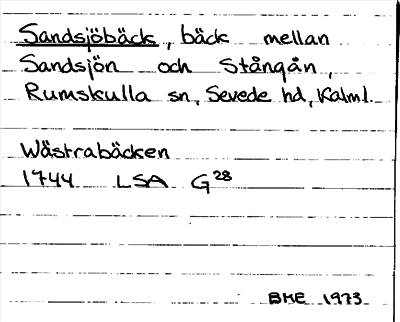 Sandsjöbäck, bäck mellan
Sandsjön och Stångån,
Rumskulla sn, Sevede hd, Kalml.
Wästrabäcken
1744 LSA G28
BHE 1973